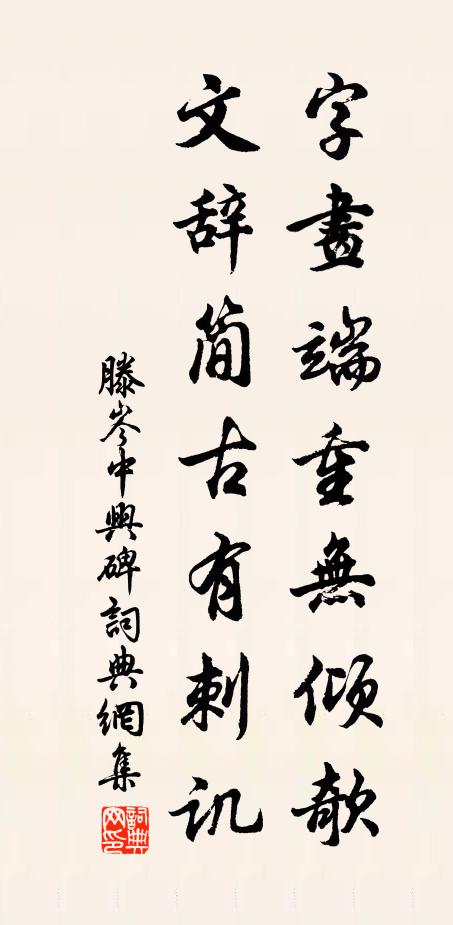 字畫端重無傾欹
文辞简古有刺讥
滕岑中興碑詞典網集
詞典网印